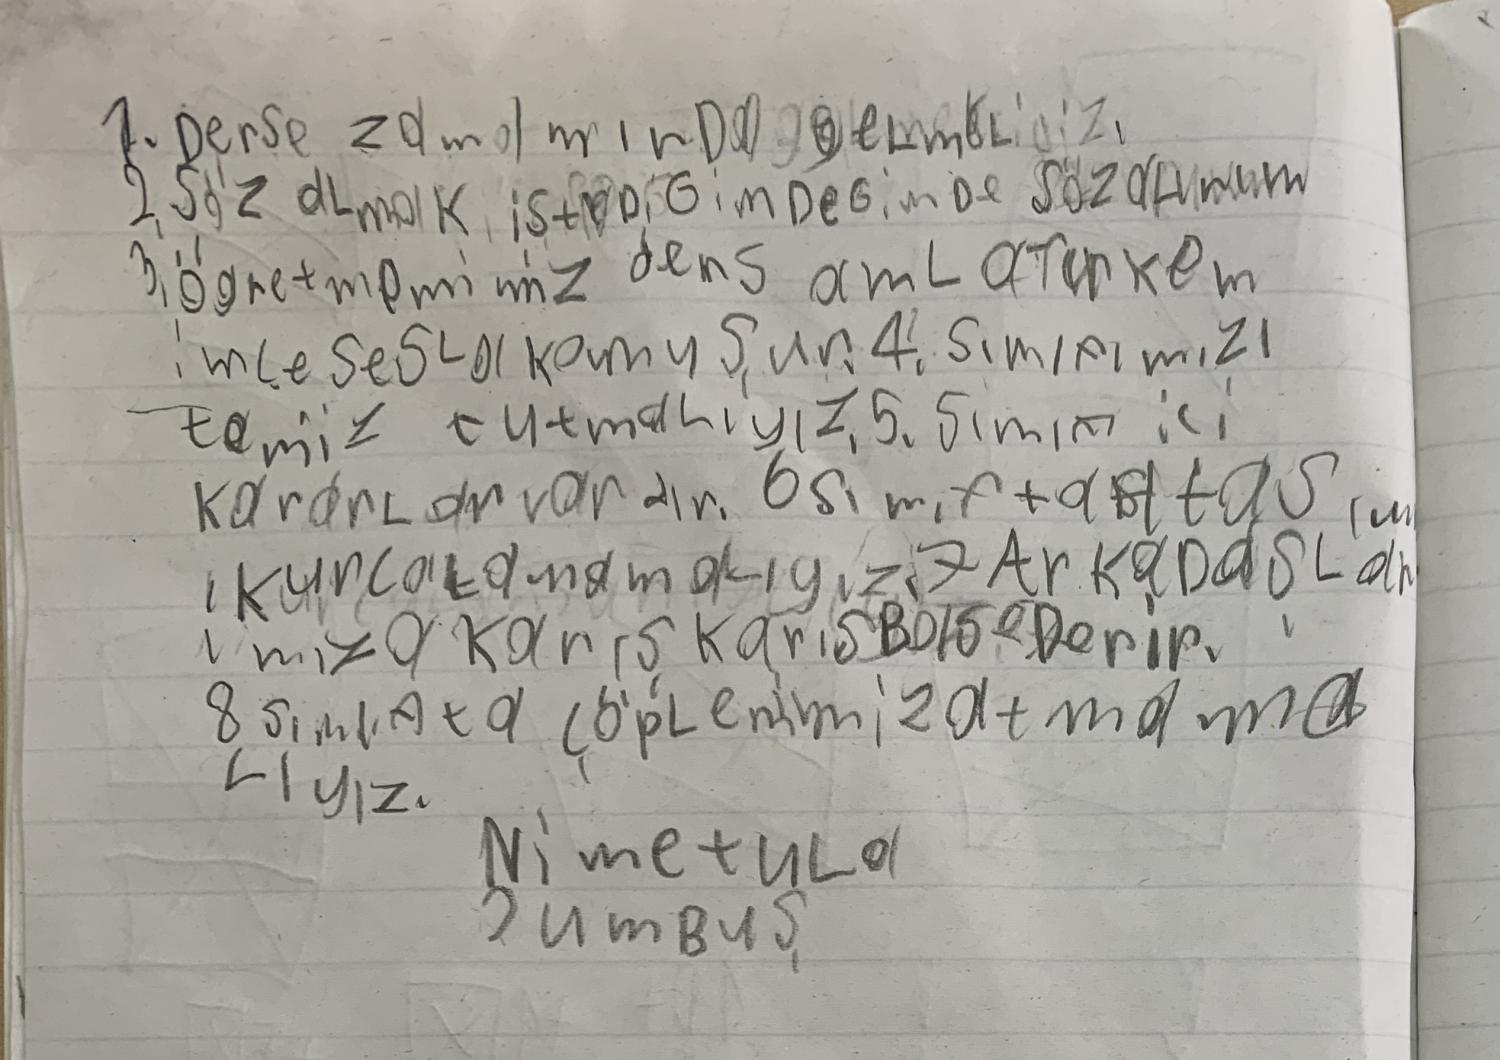 1. Derse zamamında gelmeliyiz.
2. Söz almak istediğimdeğimde söz alumum
3. öğretmemimiz dens amlatırkem
imce seslakoumuşur. 4. sımıfımızı
temiz tutmalıyız. 5. Sımıf ici
kararlar vardır. 6 sımıf tastasım
ıkurcalamamalıyız. 7 Arkadaşlar
ımıza karış karış
8 sımıfta çöplerimiz atmamma
lıyız.
Nimetula
Jumbuş